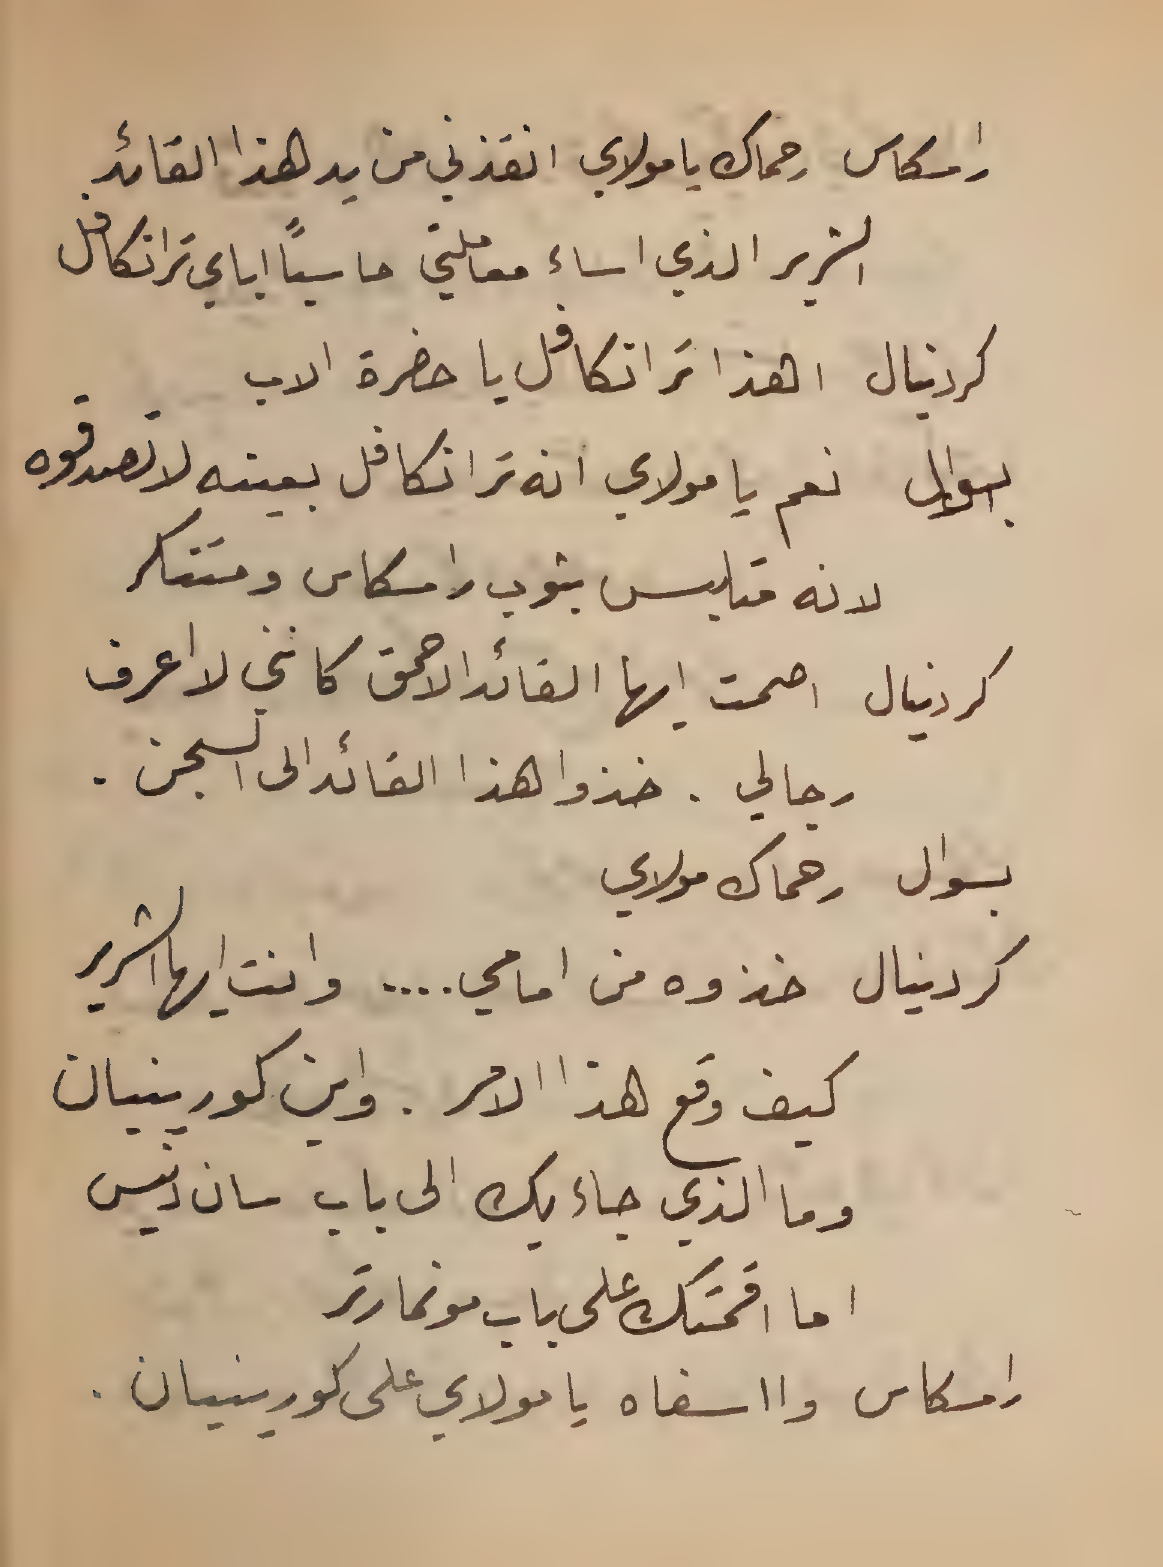 رامسكاس رحماك يا مولاي انقذني من يد هذا القائد
الشرير الذي اساء معاملتي حاسباً اياي ترانكافل
كردينال اهذا ترانكافل يا حضرة الاب
بسوال نعم يا مولاي انه ترانكافل بعينه لا تصدقوه
لانه متلبس بثوب رامسكاس ومتنكر
كردينال اصمت ايها القائد الاحمق كانني لا اعرف
رجالي . خذوا هذا القائد الى السجن .
بسوال رحماك مولاي
كردينال خذوه من امامي .... وانت ايها الشرير
كيف وقع هذا الامر . واين كورينيان
وما الذي جاء بك الى باب سان دنيس
اما اقمتك على باب مونمارتر
رامسكاس وا اسفاه يا مولاي على كورينيان .